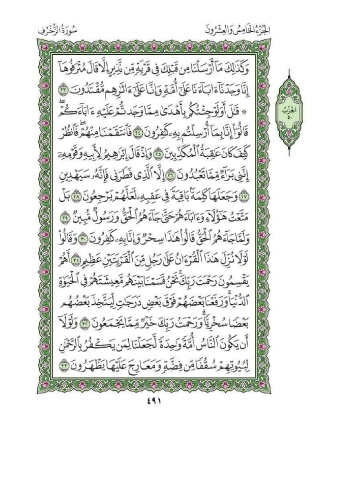 الجزء الخامس والعشرون
سورة الزخرف
وَكَذَٰلِكَ مَآ أَرْسَلْنَا مِن قَبْلِكَ فِي قَرْيَةٍ مِّن نَّذِيرٍ إِلَّا قَالَ مُتْرَفُوهَآ
إِنَّا وَجَدْنَآ ءَابَآءَنَا عَلَىٰٓ أُمَّةٍ وَإِنَّا عَلَىٰٓ ءَاثَٰرِهِم مُّقْتَدُونَ ٢٣
۞ قَٰلَ أَوَلَوْ جِئْتُكُم بِأَهْدَىٰ مِمَّا وَجَدتُّمْ عَلَيْهِ ءَابَآءَكُمْ ۖ
قَالُوٓا۟ إِنَّا بِمَآ أُرْسِلْتُم بِهِۦ كَٰفِرُونَ ٢٤ فَٱنتَقَمْنَا مِنْهُمْ ۖ فَٱنظُرْ
كَيْفَ كَانَ عَٰقِبَةُ ٱلْمُكَذِّبِينَ ٢٥ وَإِذْ قَالَ إِبْرَٰهِيمُ لِأَبِيهِ وَقَوْمِهِۦٓ
إِنَّنِي بَرَآءٌ مِّمَّا تَعْبُدُونَ ٢٦ إِلَّا ٱلَّذِي فَطَرَنِي فَإِنَّهُۥ سَيَهْدِينِ
٢٧ وَجَعَلَهَا كَلِمَةًۢ بَاقِيَةً فِي عَقِبِهِۦ لَعَلَّهُمْ يَرْجِعُونَ ٢٨ بَلْ
مَتَّعْتُ هَٰٓؤُلَآءِ وَءَابَآءَهُمْ حَتَّىٰ جَآءَهُمُ ٱلْحَقُّ وَرَسُولٌ مُّبِينٌ ٢٩
وَلَمَّا جَآءَهُمُ ٱلْحَقُّ قَالُوا۟ هَٰذَا سِحْرٌ وَإِنَّا بِهِۦ كَٰفِرُونَ ٣٠ وَقَالُوا۟
لَوْلَا نُزِّلَ هَٰذَا ٱلْقُرْءَانُ عَلَىٰ رَجُلٍ مِّنَ ٱلْقَرْيَتَيْنِ عَظِيمٍ ٣١ أَهُمْ
يَقْسِمُونَ رَحْمَتَ رَبِّكَ ۚ نَحْنُ قَسَمْنَا بَيْنَهُم مَّعِيشَتَهُمْ فِي ٱلْحَيَوٰةِ
ٱلدُّنْيَا ۚ وَرَفَعْنَا بَعْضَهُمْ فَوْقَ بَعْضٍ دَرَجَٰتٍ لِّيَتَّخِذَ بَعْضُهُم
بَعْضًا سُخْرِيًّا ۗ وَرَحْمَتُ رَبِّكَ خَيْرٌ مِّمَّا يَجْمَعُونَ ٣٢ وَلَوْلَآ
أَن يَكُونَ ٱلنَّاسُ أُمَّةً وَٰحِدَةً لَّجَعَلْنَا لِمَن يَكْفُرُ بِٱلرَّحْمَٰنِ
لِبُيُوتِهِمْ سُقُفًا مِّن فِضَّةٍ وَمَعَارِجَ عَلَيْهَا يَظْهَرُونَ ٣٣
الحزب
٥٠
٤٩١